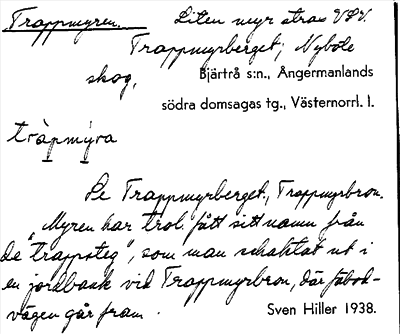 Trappmyren. Liten myr strax V.S.V.
Trappmyrberget; Nybole
skog, Bjärtrå s:n., Ångermanlands
södra domsagas tg., Västernorrl. l.
tràpmýra
Se Trappmyrberget, Trappmyrbron.
"Myren har trol. fått sitt namn från
de "trappsteg", som man schaktat ut i
en jordbank vid Trappmyrbron, där fäbod-
vägen går fram. Sven Hiller 1938.